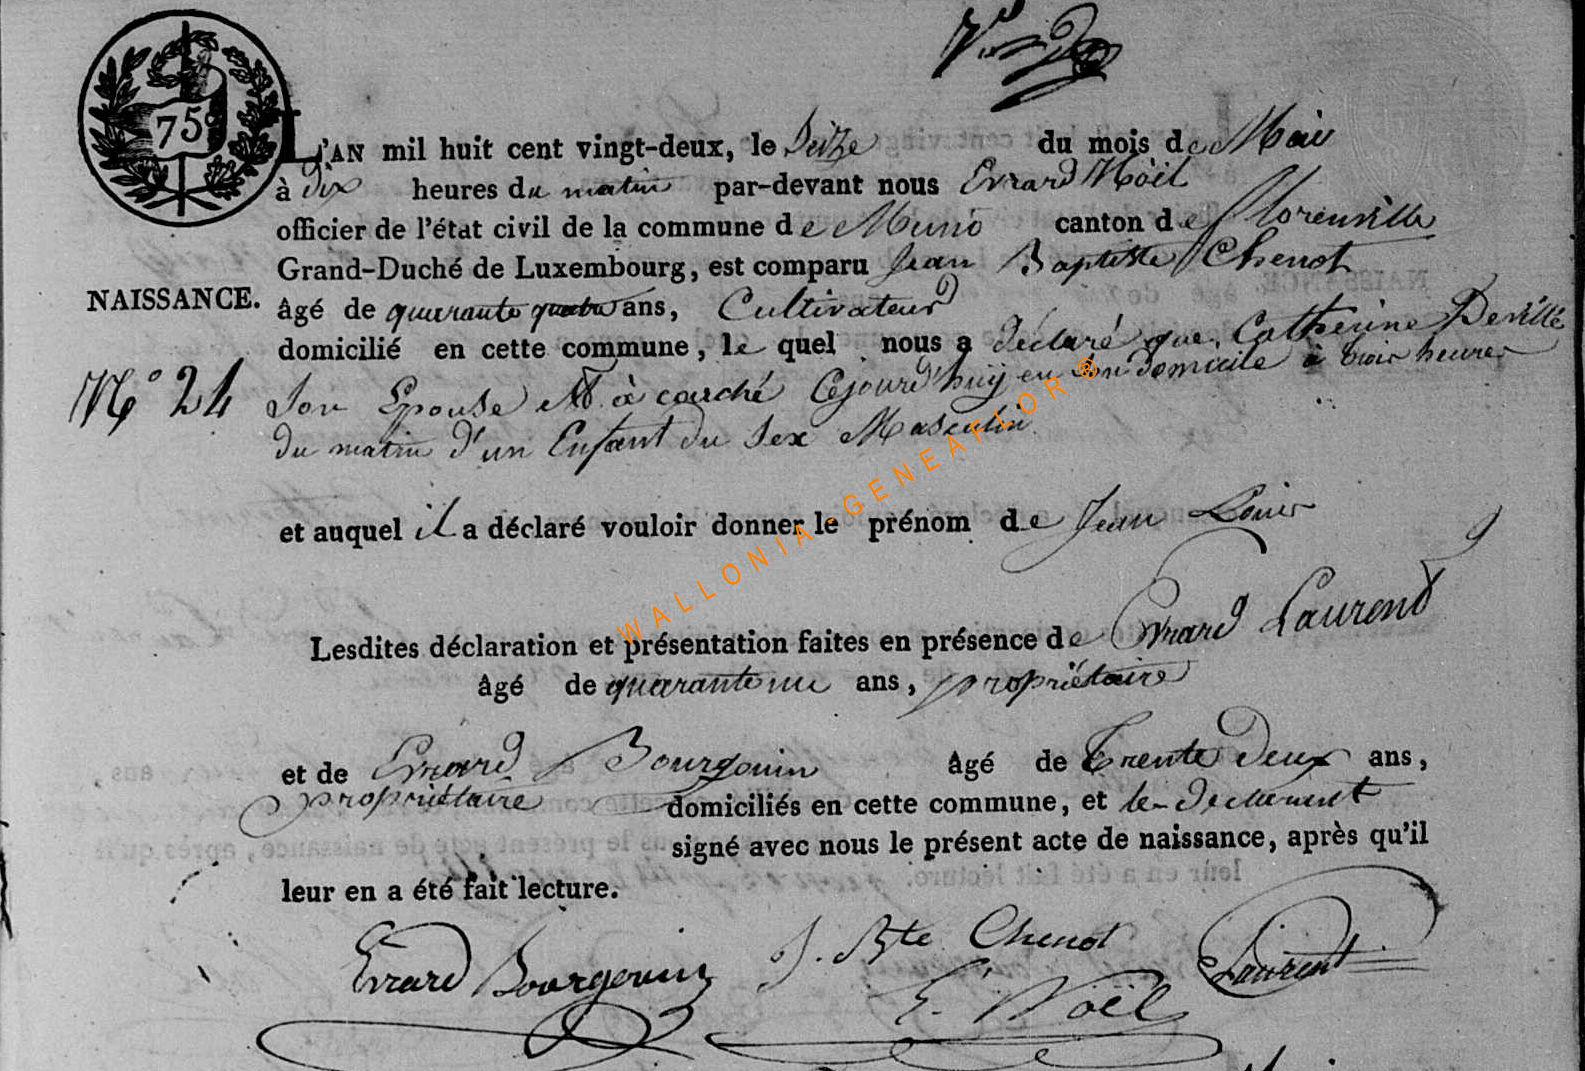 75
L'AN mil huit cent vingt-deux, le Seize du mois de Mai
à dix heures du matin par-devant nous Evrard Noël
officier de l'état civil de la commune de Muno canton de florenville
Grand-Duché de Luxembourg, est comparu Jean Baptiste Chenot
NAISSANCE. âgé de quarante quatre ans, Cultivateur
domicilié en cette commune, le quel nous a déclaré que Catherine Devillé
N° 24 Son Epouse est à couché Cejourd'huy en son domicile à trois heures
du matin d'un Enfant du Sex Masculin
et auquel il a déclaré vouloir donner le prénom de Jean Louis
Lesdites déclaration et présentation faites en présence de Evrard Laurend
âgé de quarante un ans, propriétaire
et de Evrard Bourgouin âgé de trente deux ans,
propriétaire domiciliés en cette commune, et le declarant
signé avec nous le présent acte de naissance, après qu'il
leur en a été fait lecture.
Evrard Bourgouin J. Bte Chenot Laurent
E. Noël
WALLONIA-GENEAFLOR®